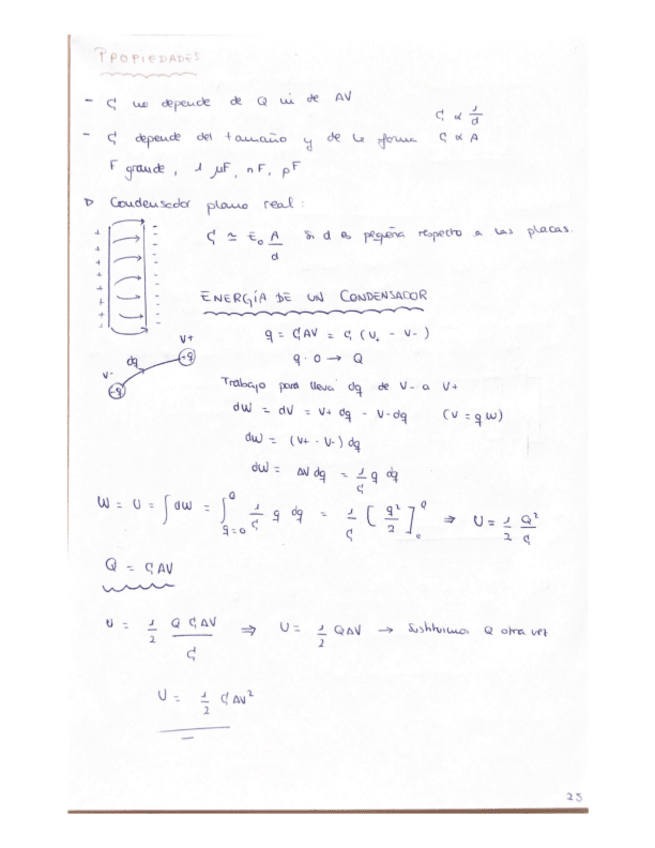 PROPIEDADES
- C no depende de Q ni de ΔV
C ∝ 1/d
- C depende del tamaño y de la forma C ∝ A
F grande, 1 μF, nF, pF
Condensador plano real:
C ≃ ε₀ A/d Si d es pequeña respecto a las placas.
ENERGÍA DE UN CONDENSADOR
q = CΔV = C (V+ - V-)
q: 0 → Q
V+
dq
+q
V-
-q
Trabajo para llevar dq de V- a V+
dW = dU = V+ dq - V- dq (V = q W)
dW = (V+ - V-) dq
dW = ΔV dq = 1/C q dq
W = U = ∫ dW = ∫_{q=0}^{Q} 1/C q dq = 1/C [q²/2]_0^Q ⇒ U = 1/2 Q²/C
Q = CΔV
U = 1/2 Q CΔV/C ⇒ U = 1/2 QΔV → Sustituimos Q otra vez
U = 1/2 CΔV²
25